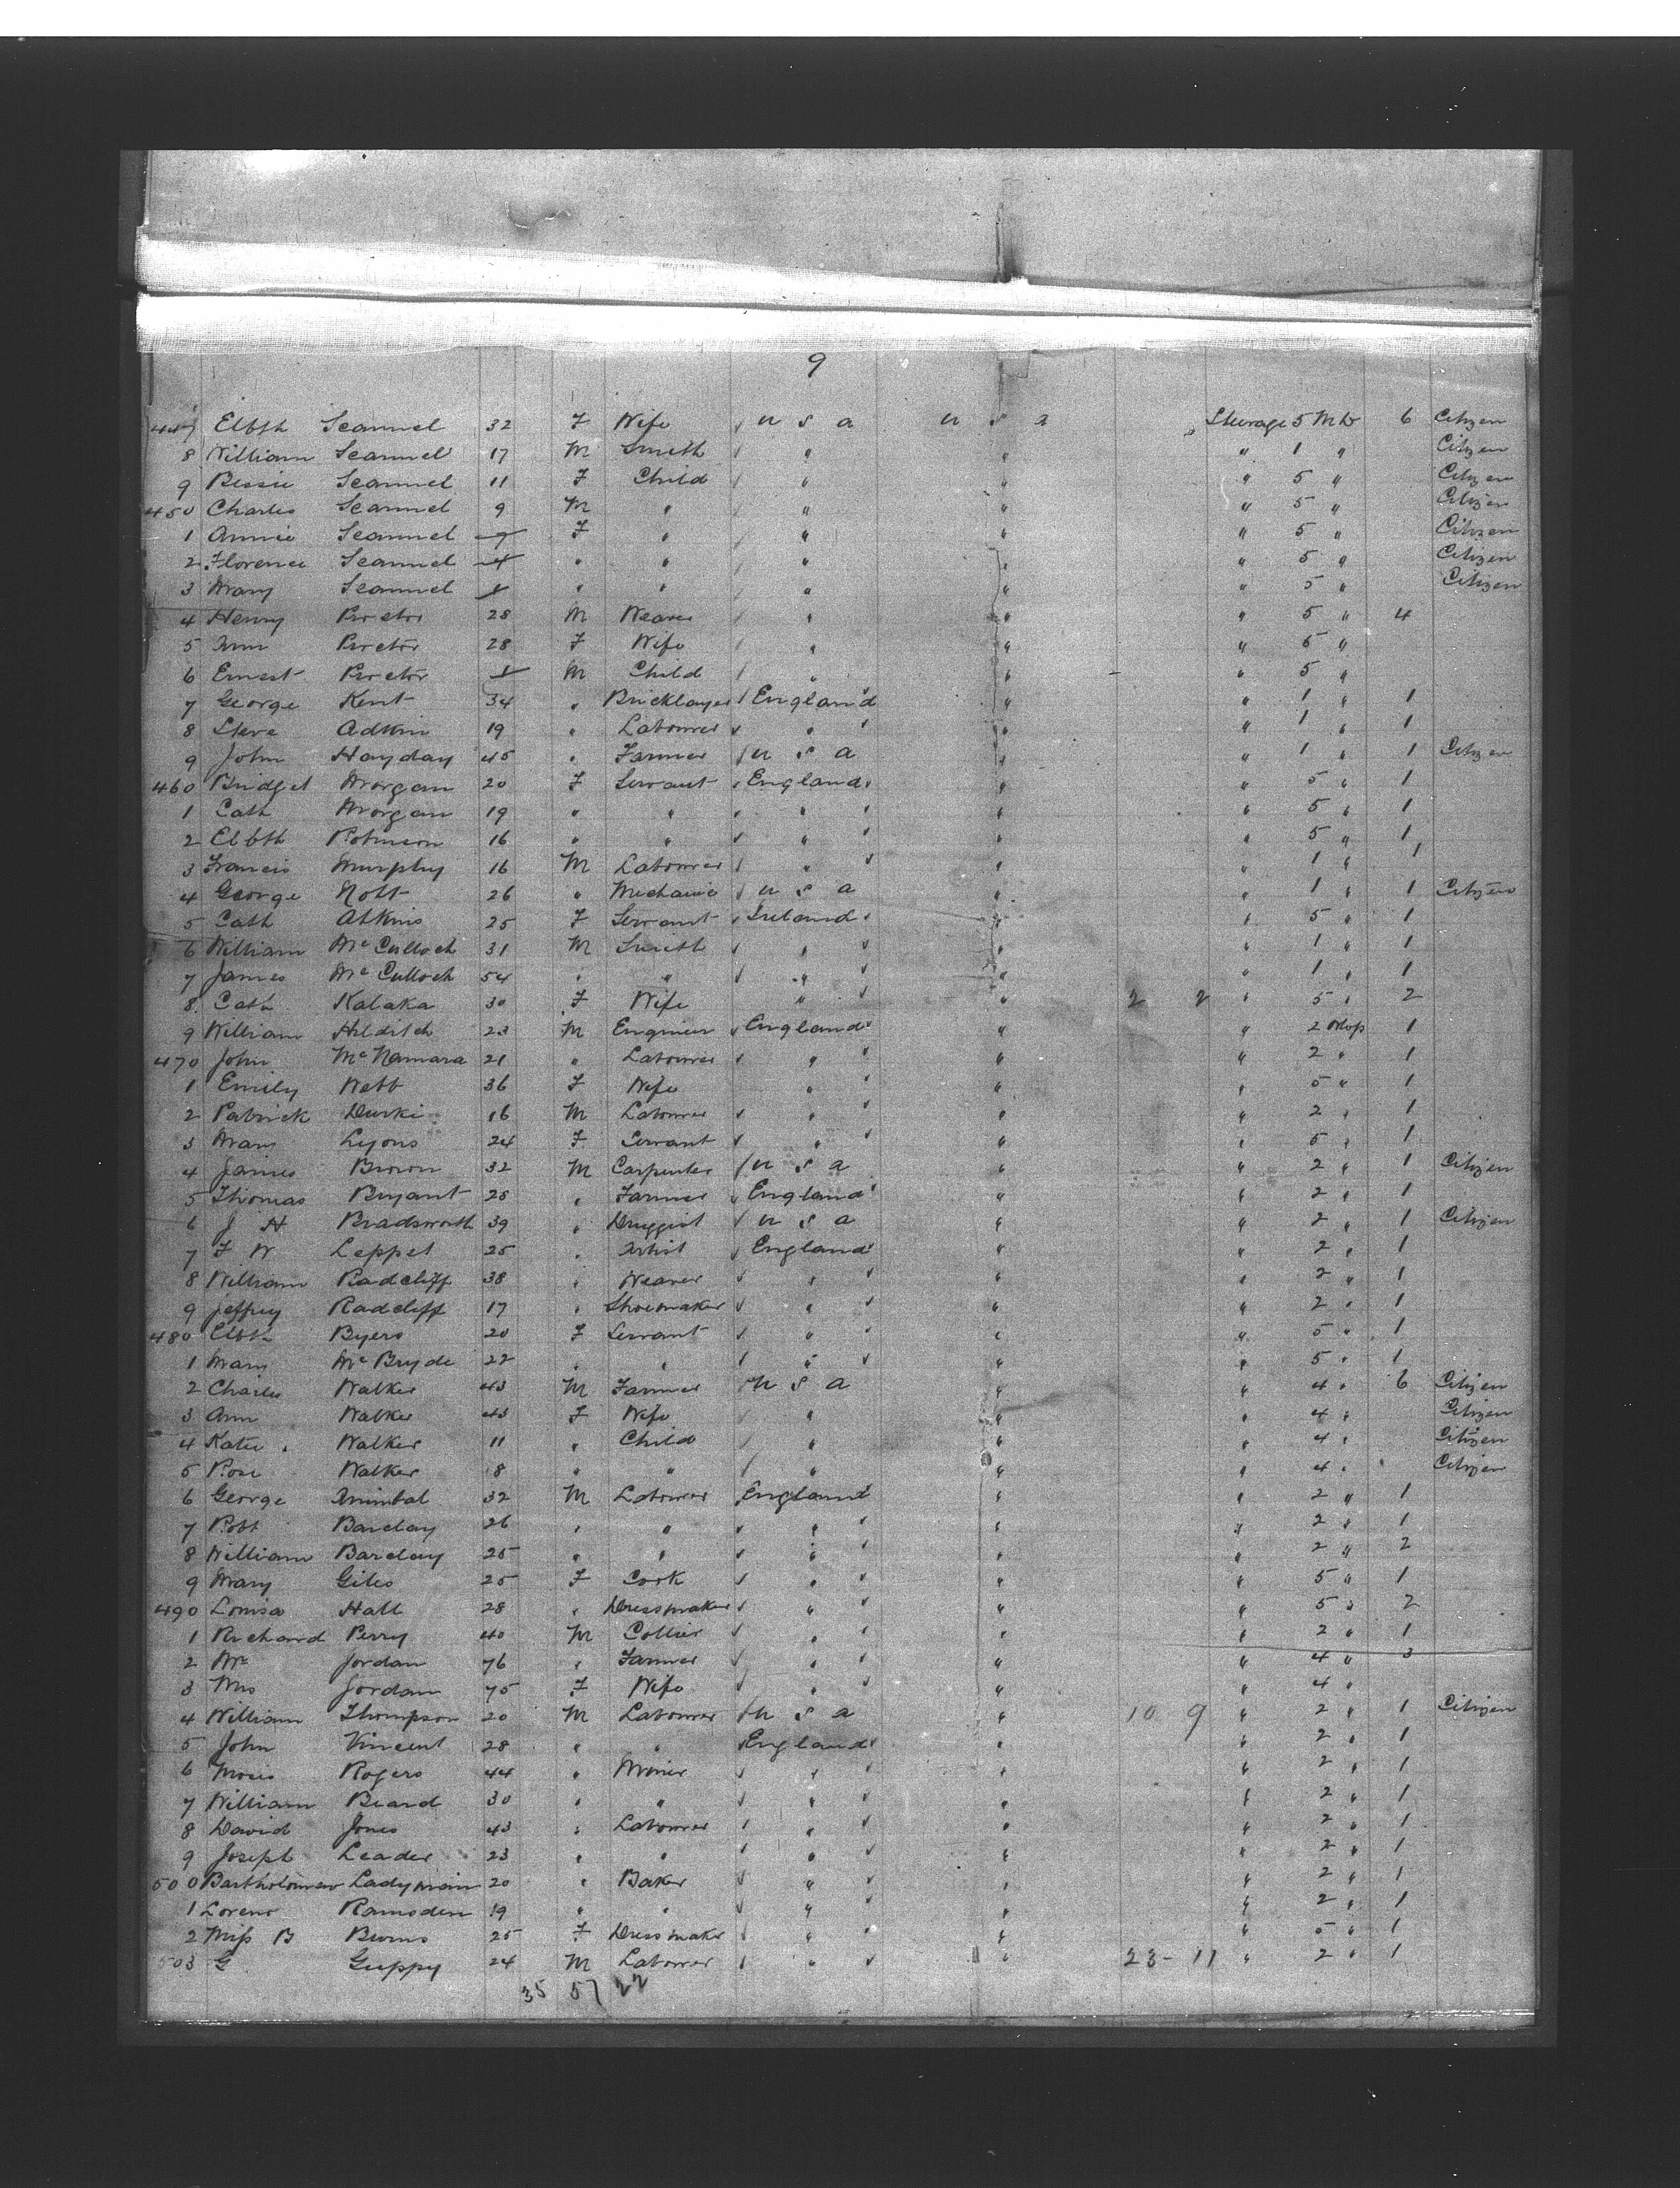 9
447 Elbth Scannel 32 F Wife U S A U S A Steerage 5 Mb 6 Citizen
8 William Scannel 17 M Smith " " " 1 " Citizen
9 Bessie Scannel 11 F Child " " " 5 " Citizen
450 Charles Scannel 9 M " " " " 5 " Citizen
1 Annie Scannel 7 F " " " " 5 " Citizen
2 Florence Scannel 4 " " " " " 5 " Citizen
3 Mary Scannel " " " " " 5 " Citizen
4 Henry Proctor 28 M Weaver " " " 5 " 4
5 Ann Proctor 28 F Wife " " " 5 "
6 Ernest Proctor 1 M Child " " " 5 "
7 George Kent 34 " Bricklayer England " " 1 " 1
8 Steve Adkin 19 " Labourer " " " 1 " 1
9 John Hayday 45 " Farmer U S A " " 1 " 1 Citizen
460 Bridget Morgan 20 F Servant England " " 5 " 1
1 Cath Morgan 19 " " " " " 5 " 1
2 Elbth Robinson 16 " " " " " 5 " 1
3 Francis Murphy 16 M Labourer " " " 1 " 1
4 George Nott 26 " Mechanic U S A " " 1 " 1 Citizen
5 Cath Atkins 25 F Servant Ireland " " 5 " 1
6 William McCulloch 31 M Smith " " " 1 " 1
7 James McCulloch 54 " " " " " 1 " 1
8 Cath Kalaka 30 F Wife " " 2 2 " 5 " 2
9 William Hilditch 23 M Engineer England " " 2 1
470 John McNamara 21 " Labourer " " " 2 " 1
1 Emily Webb 36 F Wife " " " 5 " 1
2 Patrick Durki 16 M Labourer " " " 2 " 1
3 Mary Lyons 24 F Servant " " " 5 " 1
4 James Brown 32 M Carpenter U S A " " 2 " 1 Citizen
5 Thomas Bryant 25 " Farmer England " " 2 " 1
6 J H Bradsworth 39 " Druggist U S A " " 2 " 1 Citizen
7 F W Leppet 25 " Artist England " " 2 " 1
8 William Radcliff 38 " Weaver " " " 2 " 1
9 Jeffrey Radcliff 17 " Shoemaker " " " 2 " 1
480 Elbth Byers 20 F Servant " " " 5 " 1
1 Mary McBryde 22 " " " " " 5 " 1
2 Charles Walker 43 M Farmer U S A " " 4 " 6 Citizen
3 Ann Walker 43 F Wife " " " 4 " Citizen
4 Katie Walker 11 " Child " " " 4 " Citizen
5 Rose Walker 8 " " " " " 4 " Citizen
6 George 32 M Labourer England " " 2 " 1
7 Robt Barclay 26 " " " " " 2 " 1
8 William Barclay 25 " " " " " 2 " 2
9 Mary Giles 25 F Cook " " " 5 " 1
490 Louisa Hall 28 " Dressmaker " " " 5 " 2
1 Richard Perry 40 M Collier " " " 2 " 1
2 Mr Jordan 76 " Farmer " " " 4 " 3
3 Mrs Jordan 75 F Wife " " " 4 "
4 William Thompson 20 M Labourer U S A " 10 9 " 2 " 1 Citizen
5 John Vincent 28 " " England " " 2 " 1
6 Moses Rogers 44 " Miner " " " 2 " 1
7 William Beard 30 " " " " " 2 " 1
8 David Jones 43 " Labourer " " " 2 " 1
9 Joseph Leader 23 " " " " " 2 " 1
500 Bartholomew Ladyman 20 " Baker " " " 2 " 1
1 Lorens Ramsden 19 " " " " " 2 " 1
2 Miss B Burns 25 F Dressmaker " " " 5 " 1
503 G Guppy 24 M Labourer " " 23 - 11 " 2 " 1
35 57 22